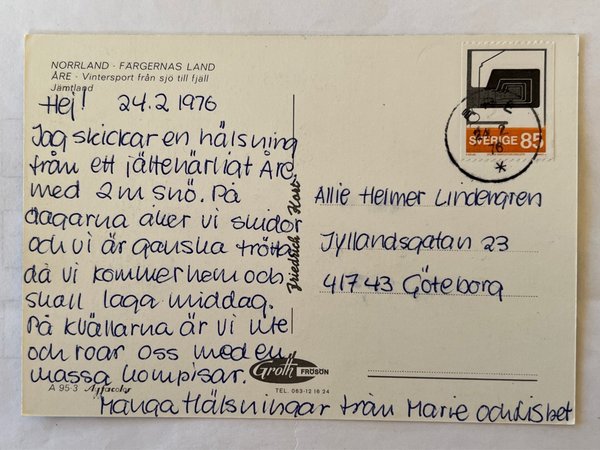 NORRLAND - FÄRGERNAS LAND
ÅRE - Vintersport från sjö till fjäll
Jämtland
Hej! 24.2 1976
Jag skickar en hälsning
från ett jättehärligt Åre
med 2m snö. På
dagarna åker vi skidor
och vi är ganska trötta
då vi kommer hem och
skall laga middag.
På kvällarna är vi ute
och roar oss med en
massa kompisar.
Många Hälsningar från Marie och Lisbet
A 95-3 Agfacolor
Friedrich - Kort
Groth FRÖSÖN
TEL. 063-12 16 24
SVERIGE 85
24 2
76
Allie Helmer Lindengren
Jyllandsgatan 23
41743 Göteborg